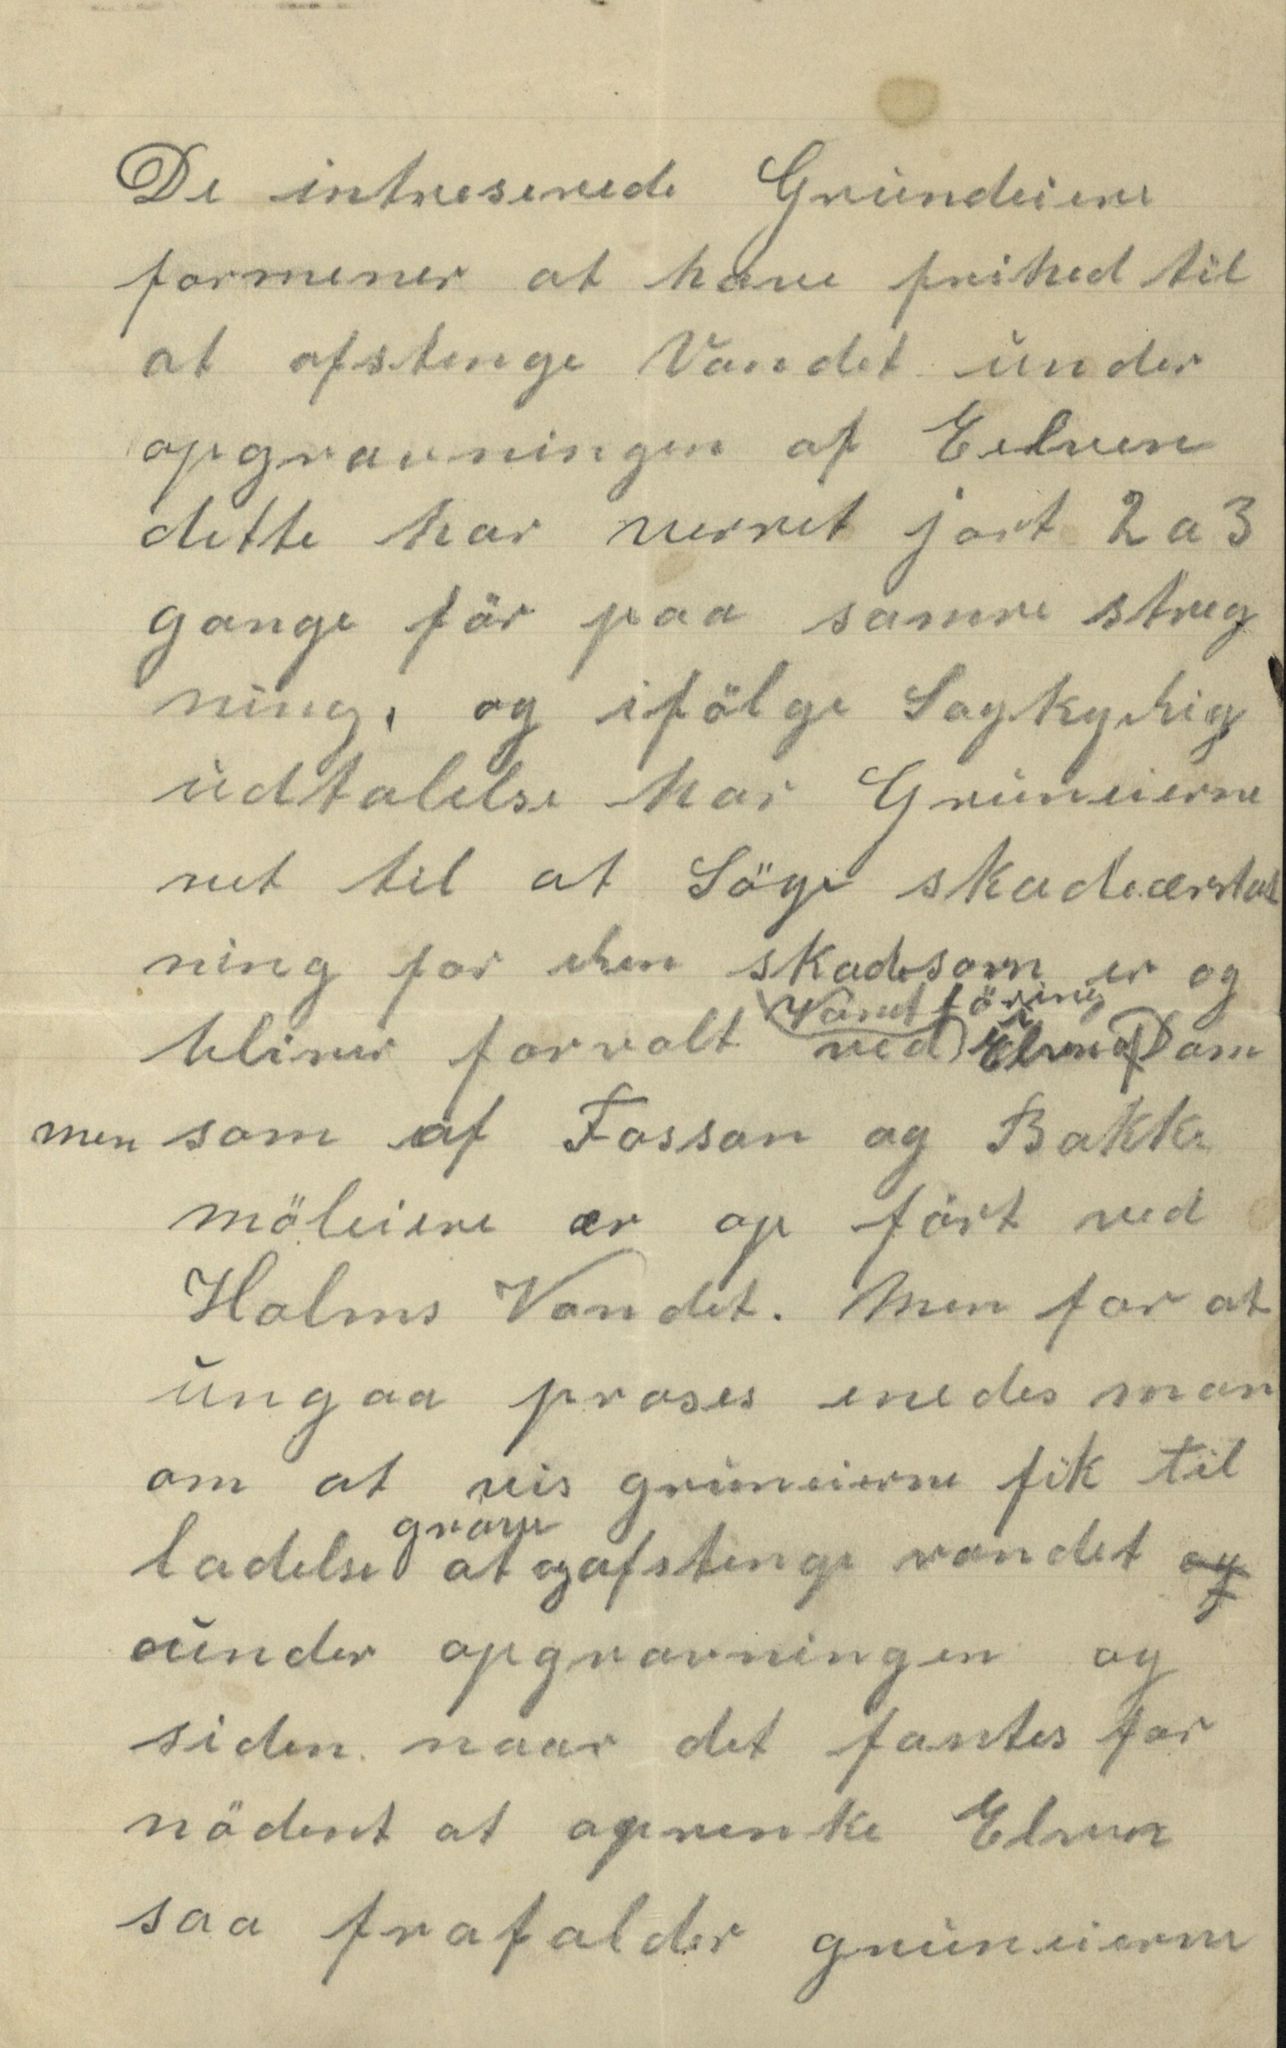 De intreserede Grundeiere
formener at have frihed til
at afstenge Vandet under
opgravningen af Eelven
dette har verret jort 2 a 3
gange för paa samre streg
ning, og ifölge Sagkyhig
udtalelse har Gruneierne
ret til at Söge skadeærstat
ning for den skadesom er og
bliver forvolt ved Vandföring i Elven af Dam
men som af Fossan og Bakke
möleiere ær op fört ved
Holms Vandet. Men for at
ungaa proses enedes man
om at vis gruneierne fik til
ladelse at grave og afstenge vandet og
under opgravningen og
siden naar det fantes for
nödent at oprenke Elven
saa frafalder gruneierne